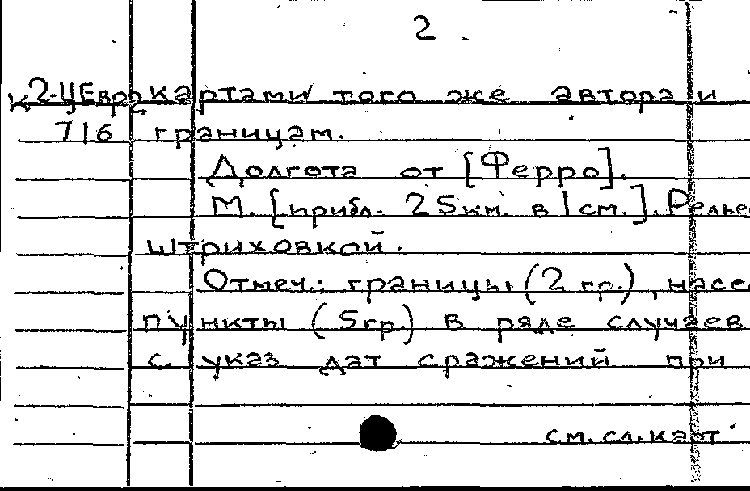 2.
К2-ЦЕвр картами того же автора и
716 границам.
Долгота от [Ферро].
М. [прибл. 25км. в 1см.]. Релье
штриховкой.
Отмеч.: границы (2 гр.), насе
пункты (5гр.) в ряде случаев
с указ дат сражений при
см. сл. карт.